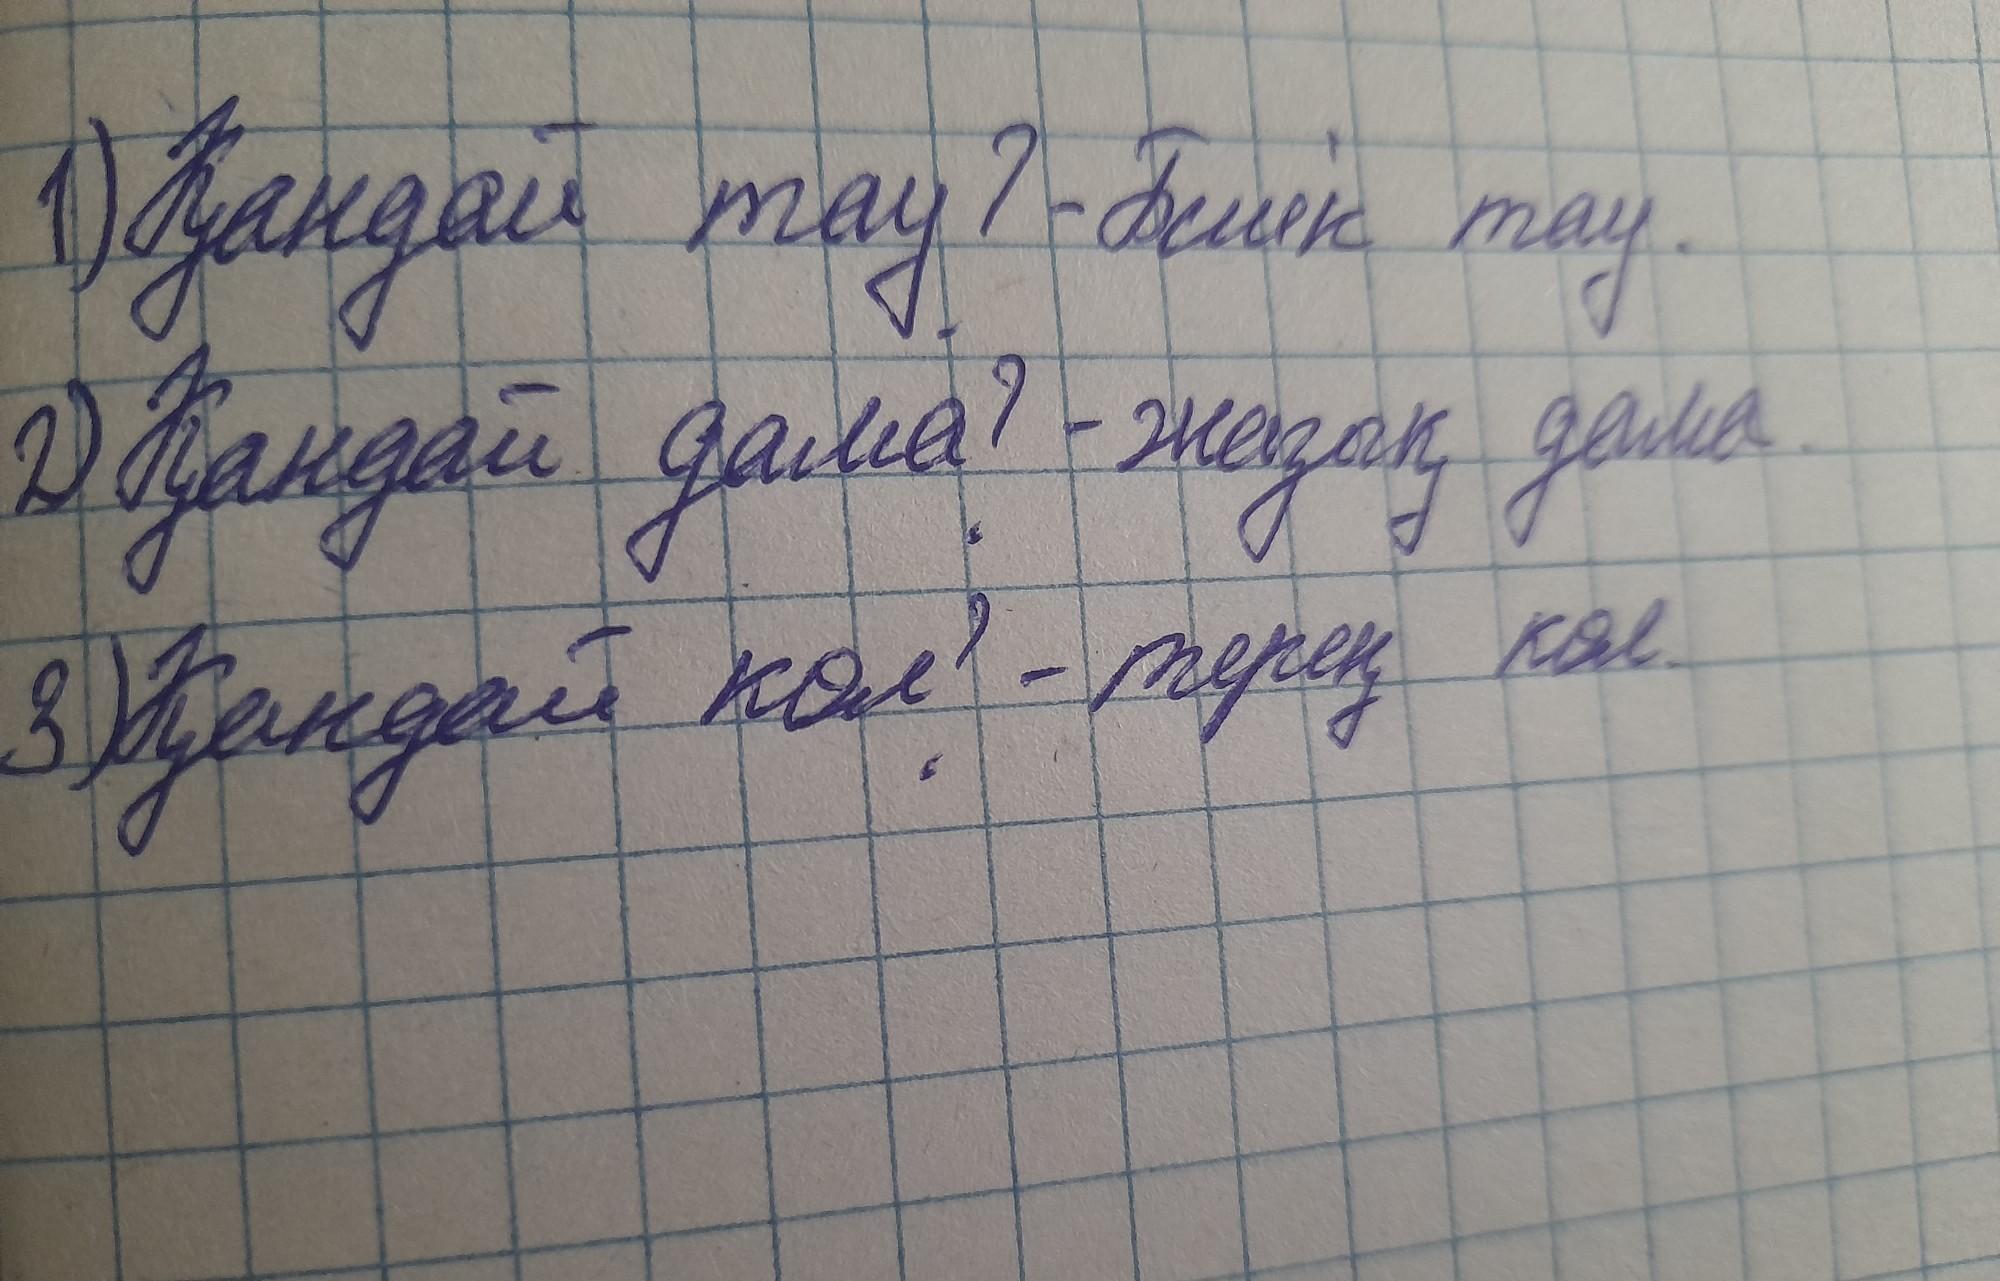 1) Қандай тау? - Биік тау.
2) Қандай дала? - жазық дала.
3) Қандай көл? - терең көл.